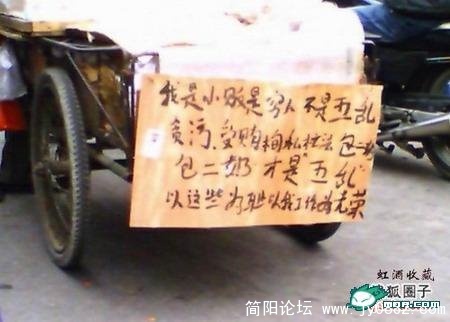 我是小贩是穷人 不是五乱
贪污、受购徇私枉法 包
包二奶 才是"五乱"
以这些为耻以我工作为光荣
虹酒收藏
狐圈子
简阳论坛